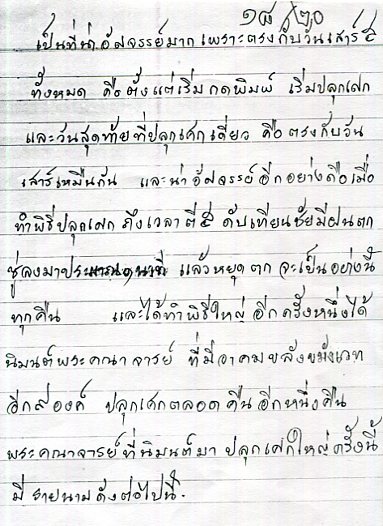 ๑๘/๒๐
เป็นที่น่าอัศจรรย์มาก เพราะตรงกับวันเสาร์ ๕
ทั้งหมด คือตั้งแต่เริ่มกดพิมพ์ เริ่มปลุกเศก
และวันสุดท้ายที่ปลุกเศกเดี่ยว คือตรงกับวัน
เสาร์เหมือนกัน และน่าอัศจรรย์อีกอย่างคือเมื่อ
ทำพิธีปลุกเศก ถึงเวลาตี ๕ ดับเทียนชัยมีฝนตก
ซู่ลงมา แล้วหยุดตก จะเป็นอย่างนี้
ทุกคืน และได้ทำพิธีใหญ่ อีกครั้งหนึ่งได้
นิมนต์พระคณาจารย์ ที่มีอาคมขลังขมังเวท
อีก ๙ องค์ ปลุกเศกตลอดคืนอีกหนึ่งคืน
พระคณาจารย์ที่นิมนต์มา ปลุกเศกใหญ่ครั้งนี้
มีรายนามดังต่อไปนี้.